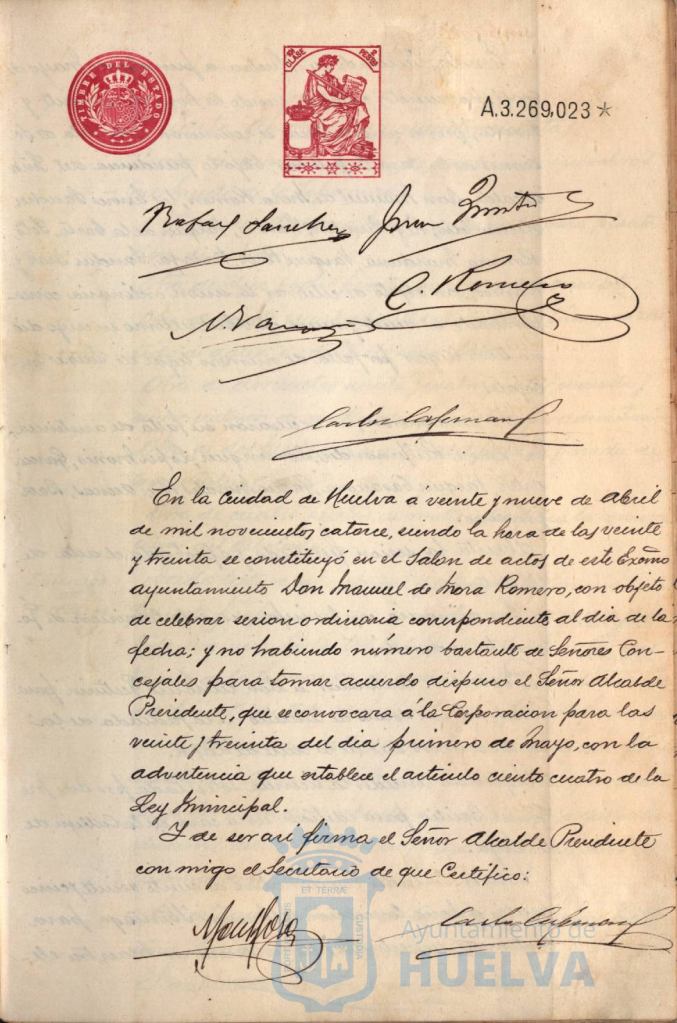 TIMBRE DEL ESTADO
CLASE
PESETAS
A.3.269,023*
Rafael Sanchez Juan Quintero
C. Romero
En la Ciudad de Huelva á veinte y nueve de Abril
de mil novecientos catorce, siendo la hora de las veinte
y treinta se constituyó en el Salon de actos de este Excmo
ayuntamiento Don Manuel de Mora Romero, con objeto
de celebrar sesion ordinaria correspondiente al dia de la
fecha; y no habiendo número bastante de Señores Con-
cejales para tomar acuerdo dispuso el Señor Alcalde
Presidente, que se convocara á la Corporacion para las
veinte y treinta del dia primero de Mayo, con la
advertencia que establece el articulo ciento cuatro de la
Ley Municipal.
Y de ser asi firma el Señor Alcalde Presidente
con migo el Secretario de que Certifico:
Ayuntamiento de
HUELVA